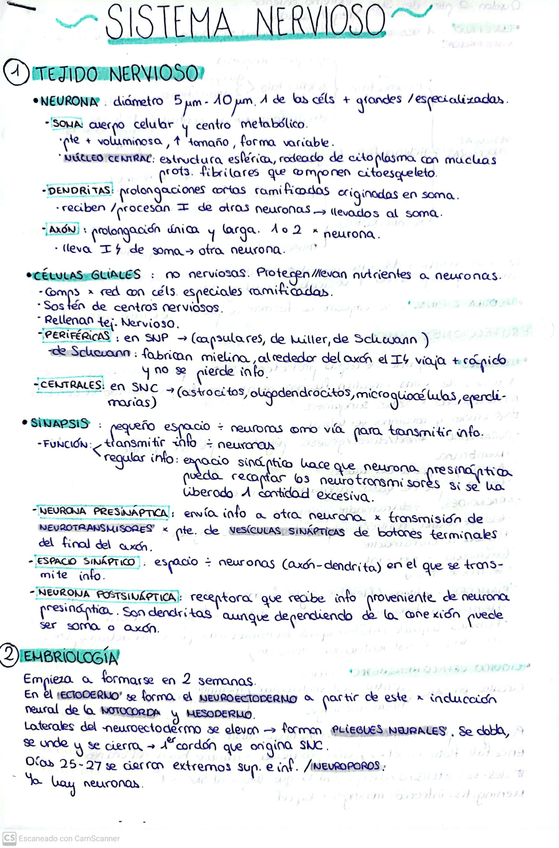 SISTEMA NERVIOSO
1 TEJIDO NERVIOSO
• NEURONA. diámetro 5μm - 10μm. 1 de las céls + grandes/especializadas.
- SOMA: cuerpo celular y centro metabólico.
· pte + voluminosa, ↑ tamaño, forma variable.
· NÚCLEO CENTRAL: estructura esférica, rodeado de citoplasma con muchas
prots. fibrilares que componen citoesqueleto.
- DENDRITAS: prolongaciones cortas ramificadas originadas en soma.
· reciben/procesan I de otras neuronas → llevados al soma.
- AXÓN: prolongación única y larga. 1 o 2 × neurona.
· lleva I de soma → otra neurona.
• CÉLULAS GLIALES: no nerviosas. Protegen/llevan nutrientes a neuronas.
- Comps × red con céls. especiales ramificadas.
- Sostén de centros nerviosos.
- Rellenan tej. Nervioso.
- PERIFÉRICAS: en SNP → (capsulares, de Müller, de Schwann)
de Schwann: fabrican mielina, alrededor del axón el I viaja + rápido
y no se pierde info.
- CENTRALES: en SNC → (astrocitos, oligodendrocitos, microgliocélulas, ependi-
marias)
• SINAPSIS: pequeño espacio ÷ neuronas como vía para transmitir info.
- FUNCIÓN: transmitir info ÷ neuronas
regular info: espacio sináptico hace que neurona presináptica
pueda recaptar los neurotransmisores si se ha
liberado 1 cantidad excesiva.
- NEURONA PRESINÁPTICA: envía info a otra neurona × transmisión de
NEUROTRANSMISORES × pte. de VESÍCULAS SINÁPTICAS de botones terminales
del final del axón.
- ESPACIO SINÁPTICO. espacio ÷ neuronas (axón-dendrita) en el que se trans-
mite info.
- NEURONA POSTSINÁPTICA: receptora que recibe info proveniente de neurona
presináptica. Son dendritas aunque dependiendo de la conexión puede
ser soma o axón.
2 EMBRIOLOGÍA
Empieza a formarse en 2 semanas.
En el ECTODERMO se forma el NEUROECTODERMO a partir de este × inducción
neural de la NOTOCORDA y MESODERMO.
Laterales del neuroectodermo se elevan → forman PLIEGUES NEURALES. Se dobla,
se unde y se cierra → 1er cordón que origina SNC.
Días 25-27 se cierran extremos sup. e inf. /NEUROPOROS.
Ya hay neuronas.
CS Escaneado con CamScanner